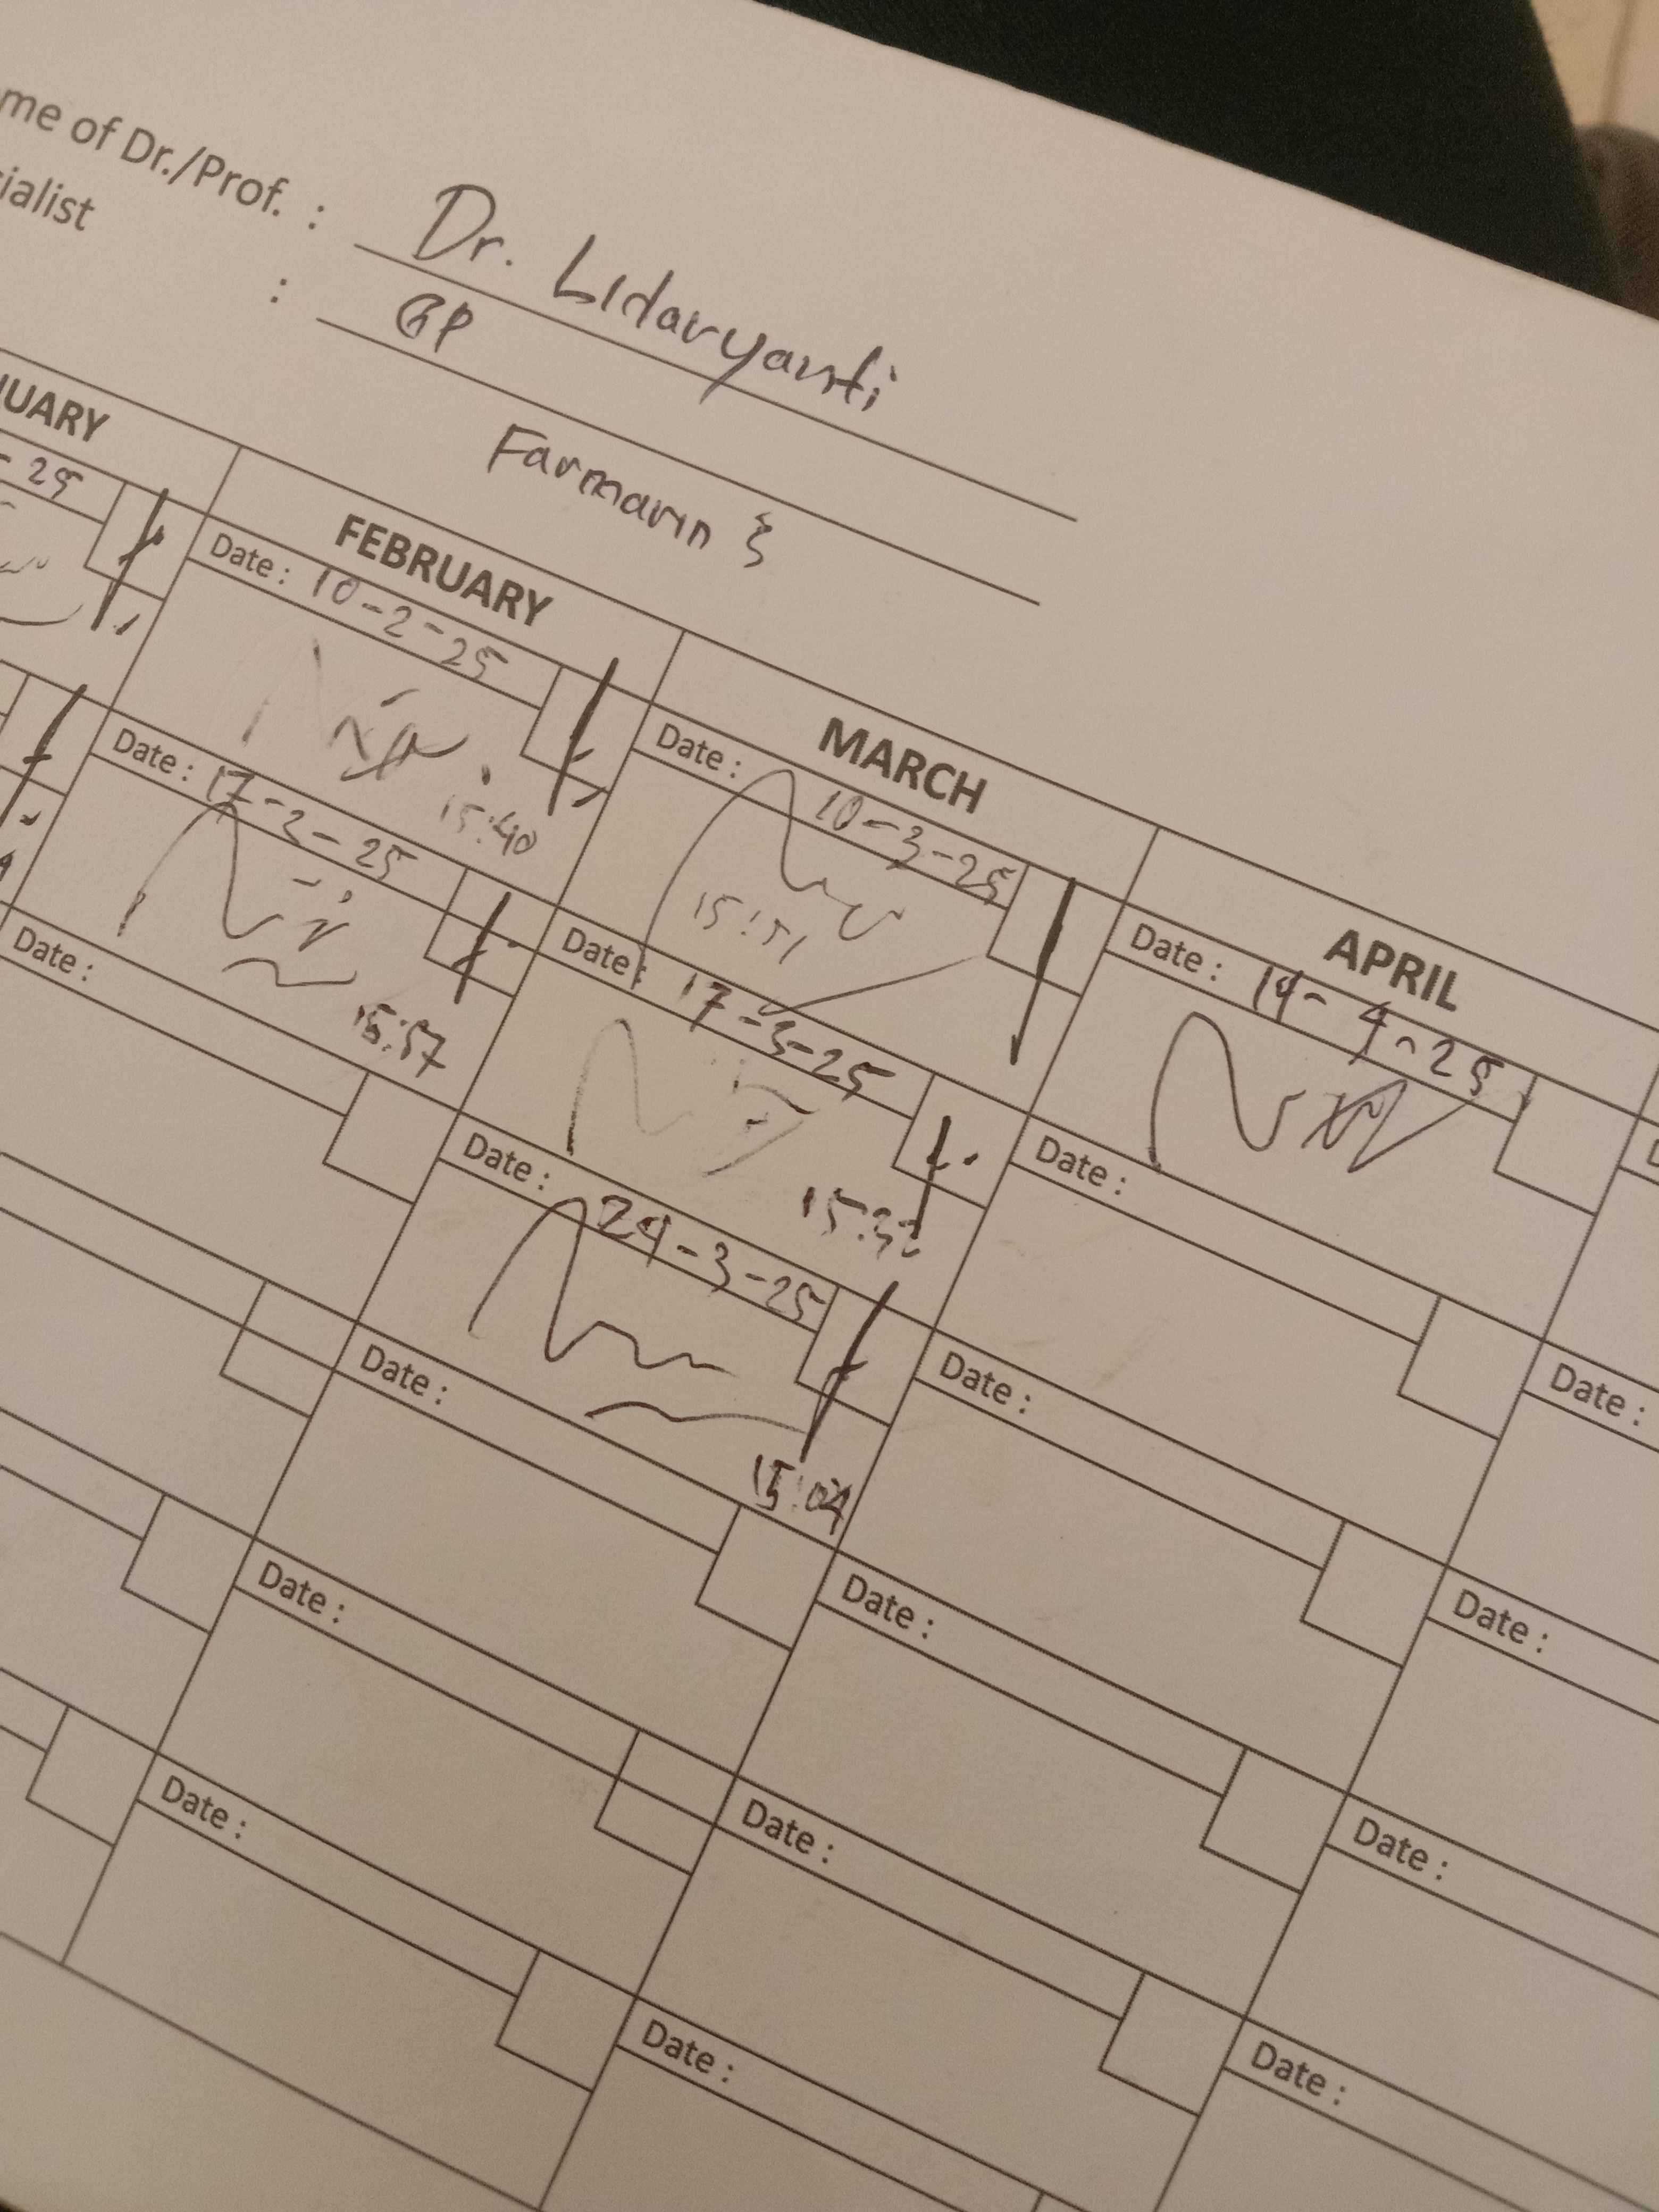 me of Dr./Prof. : Dr. Lidaryanti
ialist : GP
Farmarin
UARY FEBRUARY MARCH APRIL
- 25
Date : 10-2-25
15:40
Date : 10-3-25
15:51
Date : 14-4-25
Date : 17-2-25
15:57
Date : 17-3-25
15:32
Date :
Date :
Date :
Date : 24-3-25
15:04
Date :
Date :
Date :
Date :
Date :
Date :
Date :
Date :
Date :
Date :
Date :